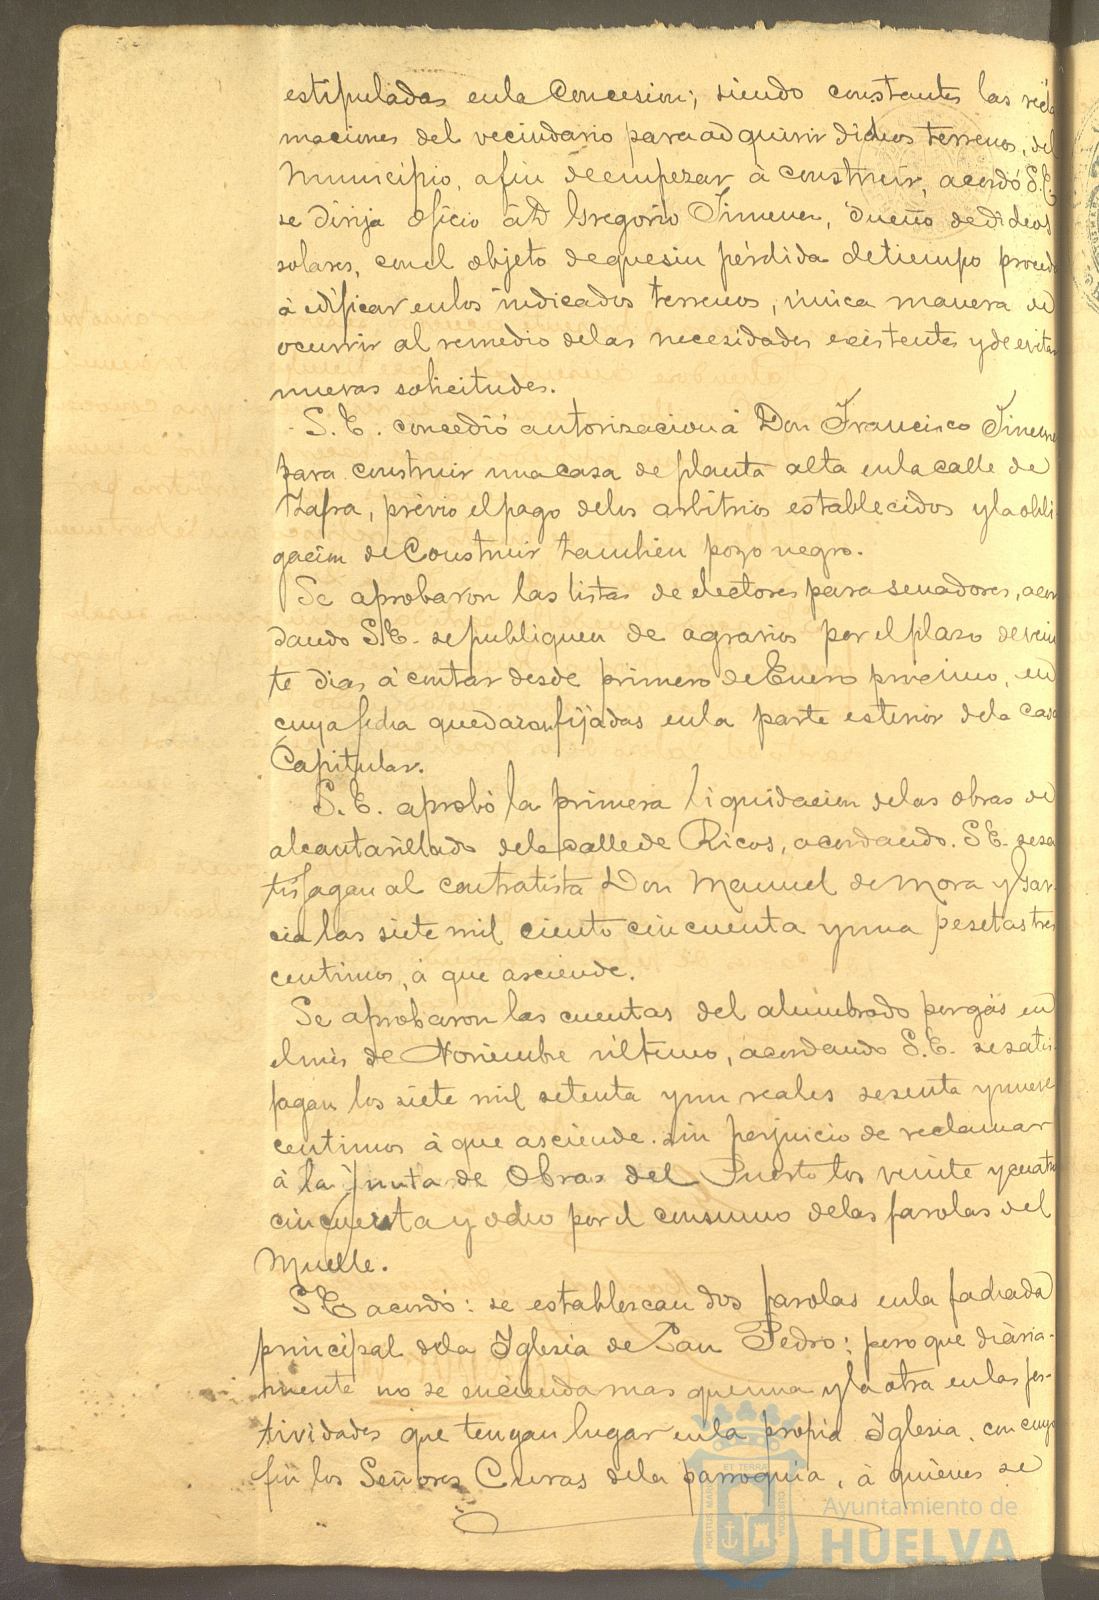 estipuladas en la Concesion; siendo constantes las recla
maciones del vecindario para adquirir dichos terrenos, del
Municipio, afin de empezar á construir, acordó S.E.
se dirija oficio á D Gregorio Jimenez, dueño de dichos
solares, con el objeto de que sin pérdida de tiempo proceda
á edificar en los indicados terrenos, única manera de
ocurrir al remedio de las necesidades existentes y de evitar
nuevas solicitudes.
S.E. concedió autorizacion á Don Francisco Jimenez
para construir una casa de planta alta en la calle de
Zafra, prévio el pago de los arbitrios establecidos y la obli
gacion de Construir tambien pozo negro.
Se aprobaron las listas de electores para senadores, acor
dando S.E. se publiquen de agravios por el plazo de vein
te dias á contar desde primero de Enero procsimo, en
cuya fecha quedaron fijadas en la parte esterior de la Casa
Capitular.
S.E. aprobó la primera liquidacion de las obras de
alcantarillado de la calle de Ricos, acordando S.E. se sa
tisfagan al contratista Don Manuel de Mora y Gar
cia las siete mil ciento cincuenta y una pesetas tres
centimos, á que asciende.
Se aprobaron las cuentas del alumbrado por gás en
el mes de Noviembre último, acordando S.E. se satis
fagan los siete mil setenta y un reales sesenta y nueve
centimos á que asciende sin perjuicio de reclamar
á la Junta de Obras del Puerto los veinte y cuatro
cincuenta y ocho por el consumo de las farolas del
Muelle.
S.E. acordó: se establescan dos farolas en la fachada
principal de la Iglesia de San Pedro: pero que diaria-
mente no se encienda mas que una y la otra en las fes-
tividades que tengan lugar en la propia Iglesia, con cuyo
fin los Señores Curas de la parroquia, á quienes se
PORTUS MARIS ET TERRAE CUSTODIA
Ayuntamiento de
HUELVA